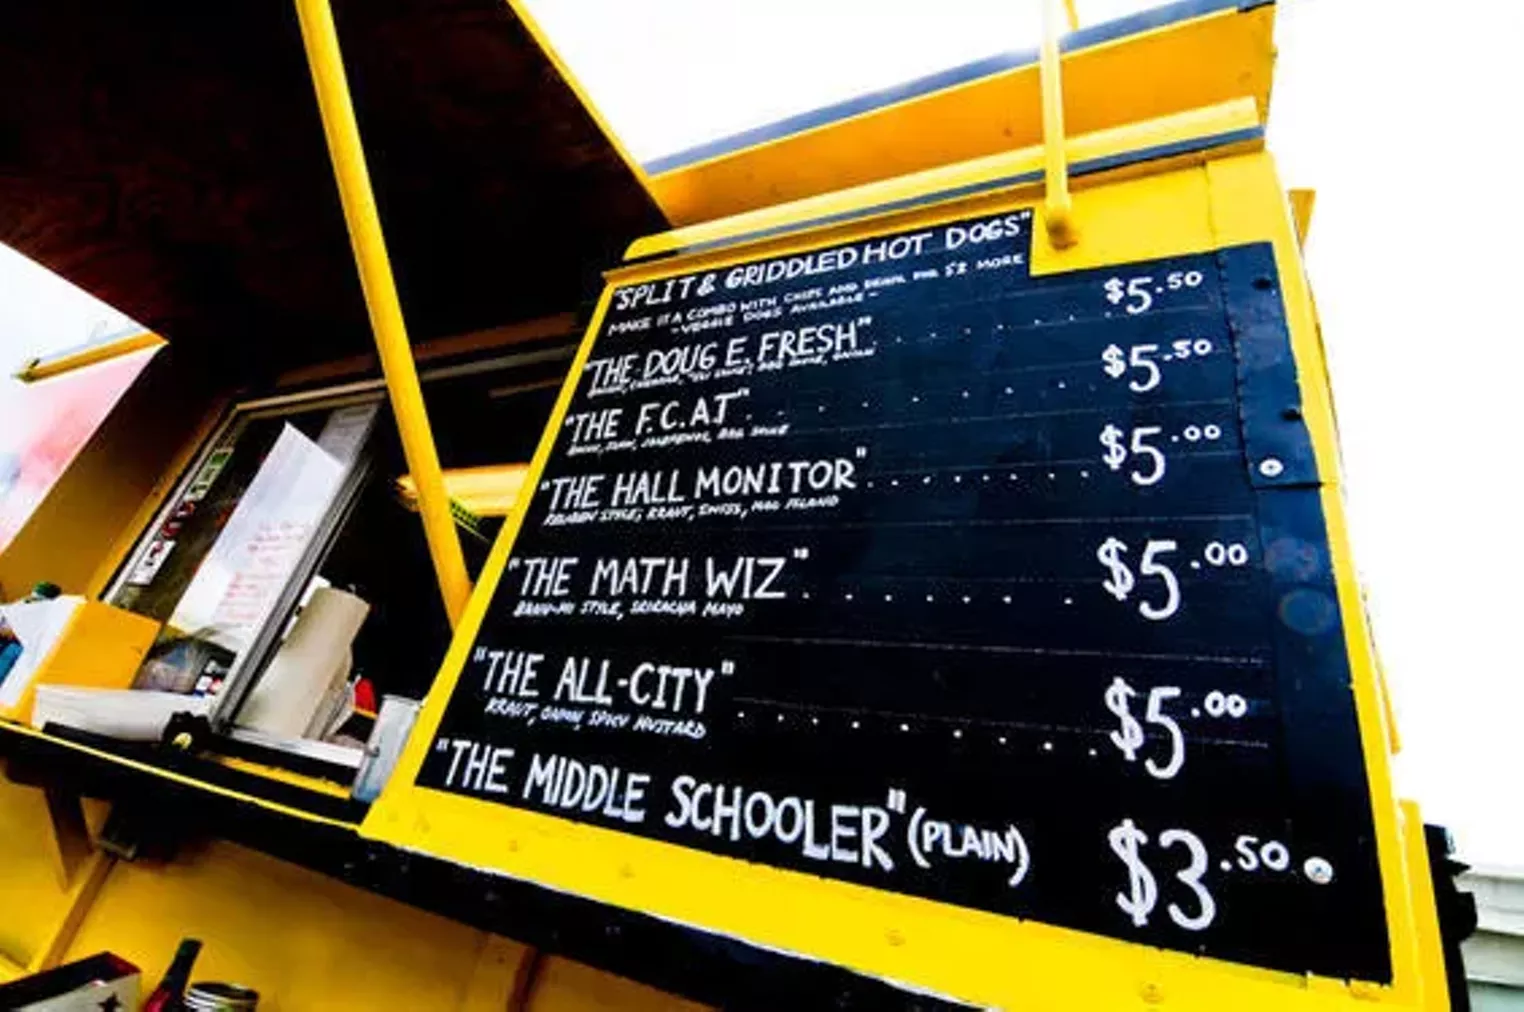 "SPLIT & GRIDDLED HOT DOGS"
MAKE IT A COMBO WITH CHIPS AND DRINK FOR $2 MORE
- VEGGIE DOGS AVAILABLE -
"THE DOUG E. FRESH" . . . . . . . $5.50
BBQ SAUCE, ONION
"THE F.C.A.T" . . . . . . . . $5.50
BACON, JALAPENOS, BBQ SAUCE
"THE HALL MONITOR" . . . . . . . . $5.00
REUBEN STYLE, KRAUT, SWISS, 1000 ISLAND
"THE MATH WIZ" . . . . . . . . $5.00
BAHN-MI STYLE, SRIRACHA MAYO
"THE ALL-CITY" . . . . . . . . . $5.00
KRAUT, ONION, SPICY MUSTARD
"THE MIDDLE SCHOOLER" (PLAIN) $3.50